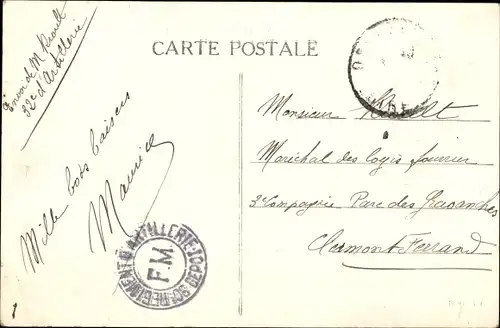 Envoi de M Rioult
32e d'Artillerie
CARTE POSTALE
Mille bons baisers
Maurice
REGIMENT D'ARTILLERIE
DEPOT
F.M.
Monsieur Rioult
Maréchal des logis fourrier
3e Compagnie Parc des Gravanches
Clermont-Ferrand